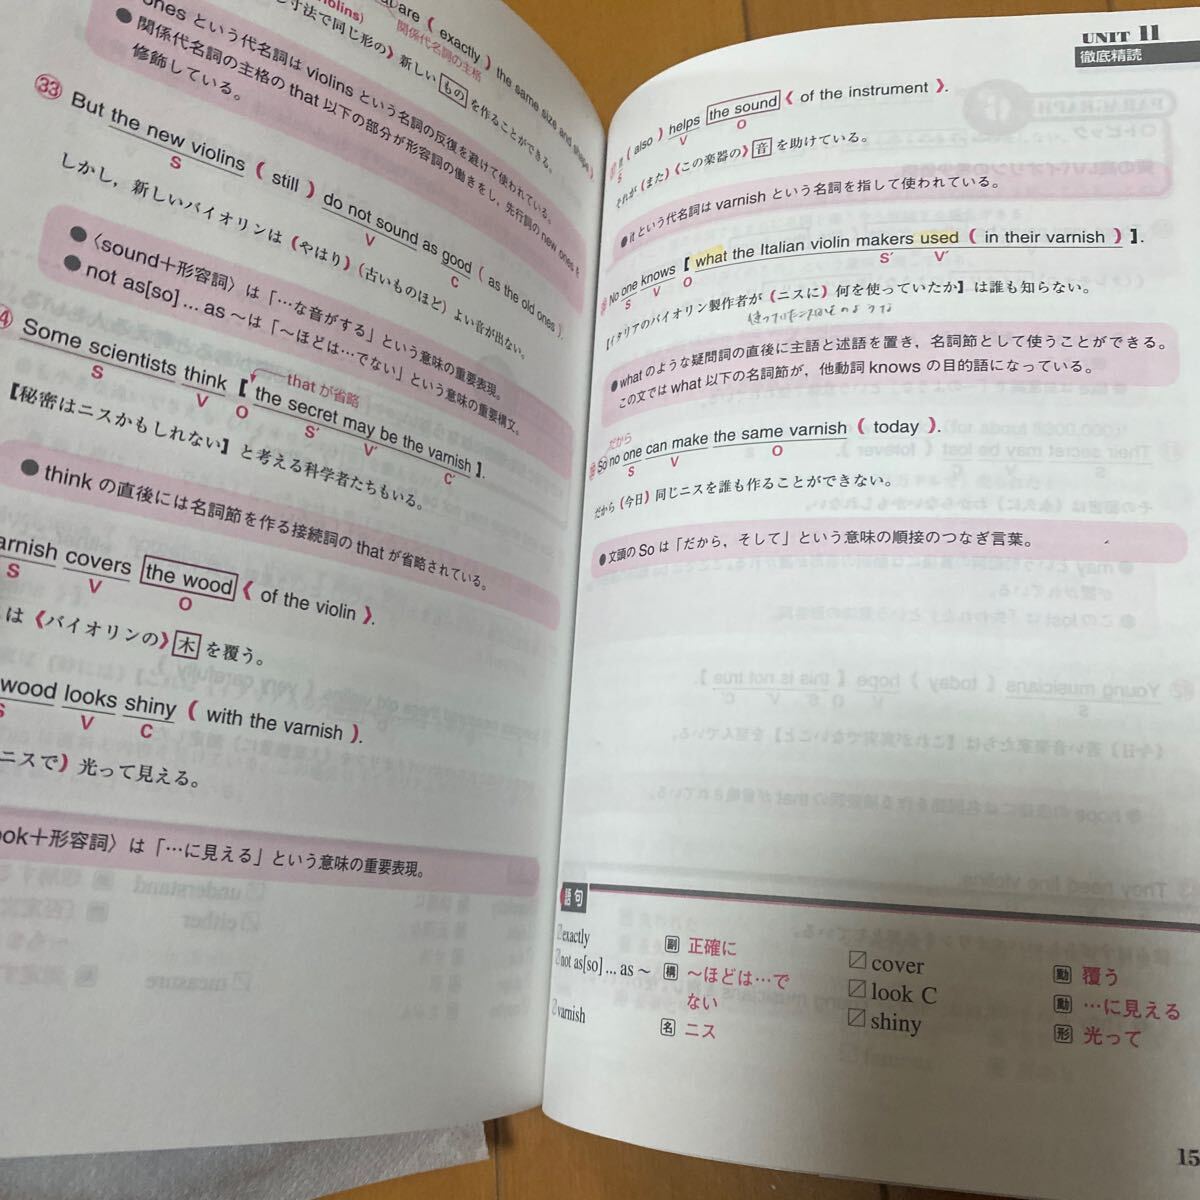 are ( exactly ) the same size and shape
関係代名詞の主格
寸法で同じ形の》新しい もの を作ることができる。
ones という代名詞は violins という名詞の反復を避けて使われている。
●関係代名詞の主格の that 以下の部分が形容詞の働きをし，先行詞の new ones を
修飾している。
㉝ But the new violins ( still ) do not sound as good ( as the old ones ).
S V C
しかし，新しいバイオリンは（やはり）（古いものほど）よい音が出ない。
●〈sound＋形容詞〉は「…な音がする」という意味の重要表現。
●not as[so] ... as ～は「～ほどは…でない」という意味の重要構文。
that が省略
Some scientists think 【 the secret may be the varnish 】.
S V O S' V' C'
【秘密はニスかもしれない】と考える科学者たちもいる。
●think の直後には名詞節を作る接続詞の that が省略されている。
arnish covers the wood 《 of the violin 》.
S V O
は《バイオリンの》木 を覆う。
wood looks shiny ( with the varnish ).
S V C
ニスで）光って見える。
ook＋形容詞〉は「…に見える」という意味の重要表現。
UNIT 11
徹底精読
It ( also ) helps the sound 《 of the instrument 》.
S V O
それが（また）《この楽器の》音 を助けている。
●it という代名詞は varnish という名詞を指して使われている。
No one knows 【 what the Italian violin makers used ( in their varnish ) 】.
S V O S' V'
【イタリアのバイオリン製作者が（ニスに）何を使っていたか】は誰も知らない。
●what のような疑問詞の直後に主語と述語を置き，名詞節として使うことができる。
この文では what 以下の名詞節が，他動詞 knows の目的語になっている。
だから
So no one can make the same varnish ( today ).
S V O
だから（今日）同じニスを誰も作ることができない。
●文頭の So は「だから，そして」という意味の順接のつなぎ言葉。
語句
exactly 副 正確に
not as[so] ... as ～ 構 ～ほどは…で
ない
varnish 名 ニス
cover 動 覆う
look C 動 …に見える
shiny 形 光って
15